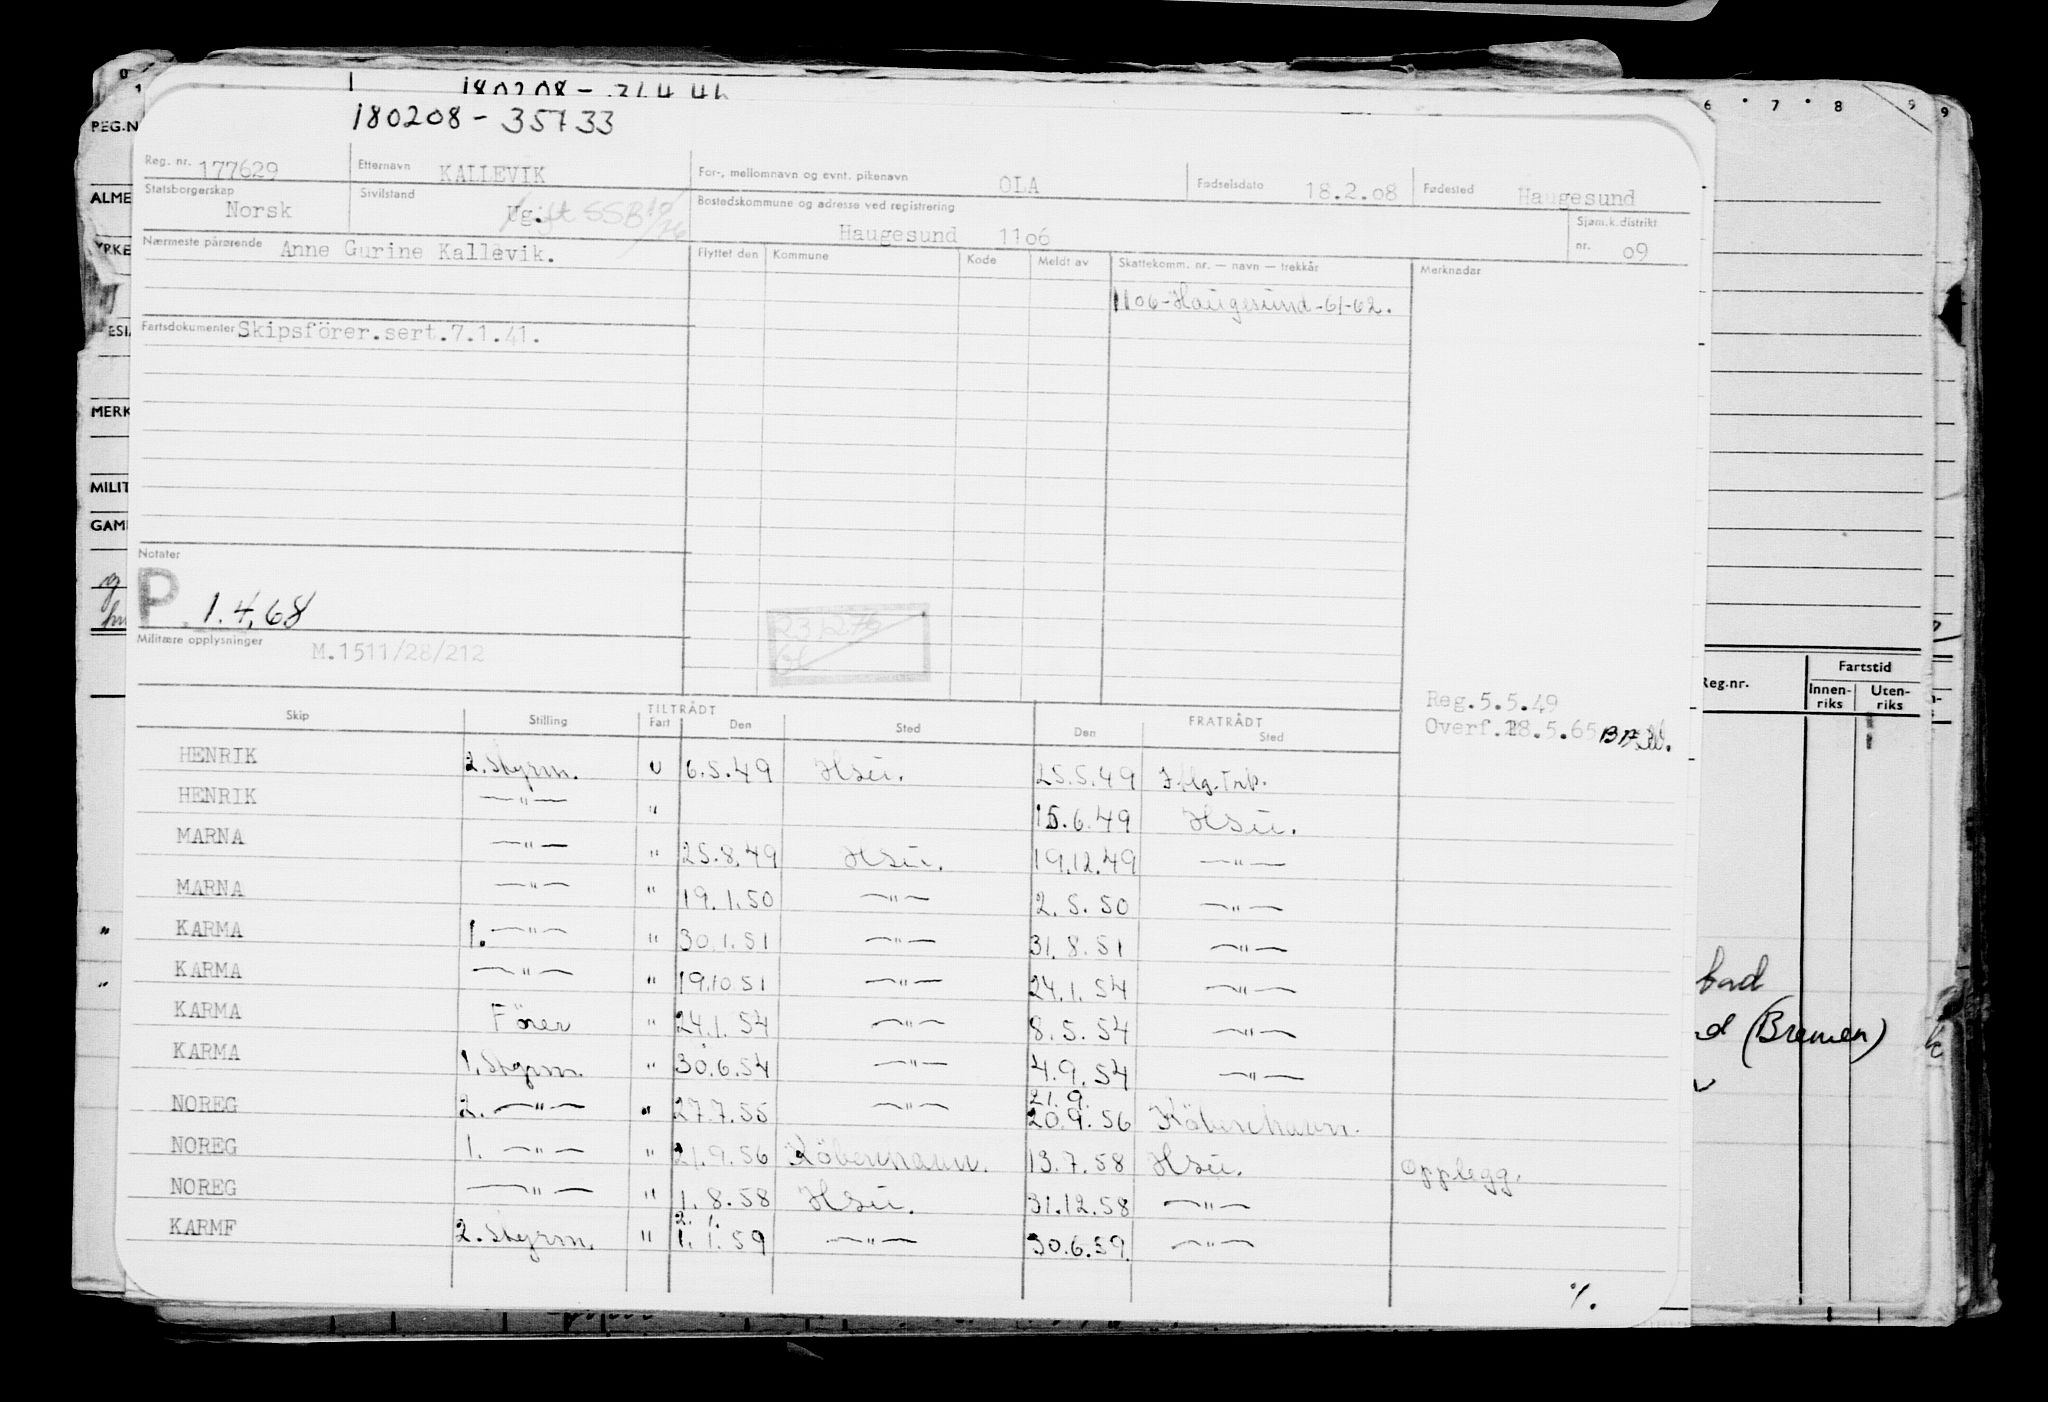 180208 - 35733
Reg. nr. 177629 Etternavn KALLEVIK For-, mellomnavn og evnt. pikenavn OLA Fødselsdato 18.2.08 Fødested Haugesund
Statsborgerskap Norsk Sivilstand Ug. Bostedskommune og adresse ved registrering Haugesund 11o6 Sjøm.k.distrikt nr. o9
Nærmeste pårørende Anne Gurine Kallevik. Flyttet den Kommune Kode Meldt av Skattekomm. nr. — navn — trekkår Merknader
1106-Haugesund-61-62.
Fartsdokumenter Skipsförer.sert.7.1.41.
Notater
P. 1.4.68
Militære opplysninger M.1511/28/212
Reg.5.5.49
Overf. 28.5.65
TILTRÅDT FRATRÅDT
Skip Stilling Fart Den Sted Den Sted
HENRIK 2. Styrm. U 6.5.49 Hsu. 25.5.49
HENRIK —"— " 15.6.49 Hsu.
MARNA —"— " 25.8.49 Hsu. 19.12.49 —"—
MARNA —"— " 19.1.50 —"— 2.5.50 —"—
KARMA 1. —"— " 30.1.51 —"— 31.8.51 —"—
KARMA —"— " 19.10.51 —"— 24.1.54 —"—
KARMA Förer " 24.1.54 —"— 8.5.54 —"—
KARMA 1. Styrm. " 30.6.54 —"— 4.9.54 —"—
21.9.
NOREG 2. —"— " 27.7.55 —"— 20.9.56 Köbenhavn.
NOREG 1. —"— " 21.9.56 Köbenhavn. 13.7.58 Hsu. Opplegg.
NOREG —"— " 1.8.58 Hsu. 31.12.58 —"—
2. 1.
KARMF 2. Styrm. " 1.1.59 —"— 30.6.59. —"—
%.
REG.N
ALME
YRKE
MERK
MILIT
6 7 8 9
Reg.nr. Fartstid
Innenriks Utenriks
(Bremen)